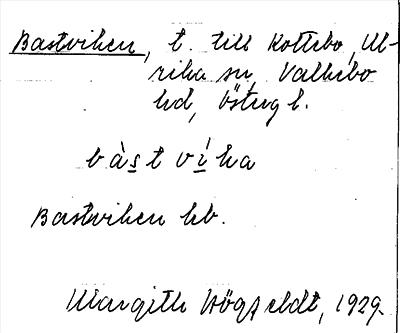 Bastviken, t. till Kottebo, Ul-
rika sn, Valkebo
hd, Östergl.
bàstvíka
Bastviken kb.
Margith Högfeldt, 1929.